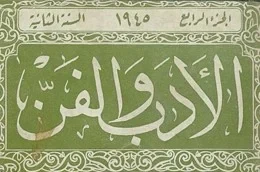 الجزء الرابع ١٩٤٥ السنة الثانية
الأدب والفن